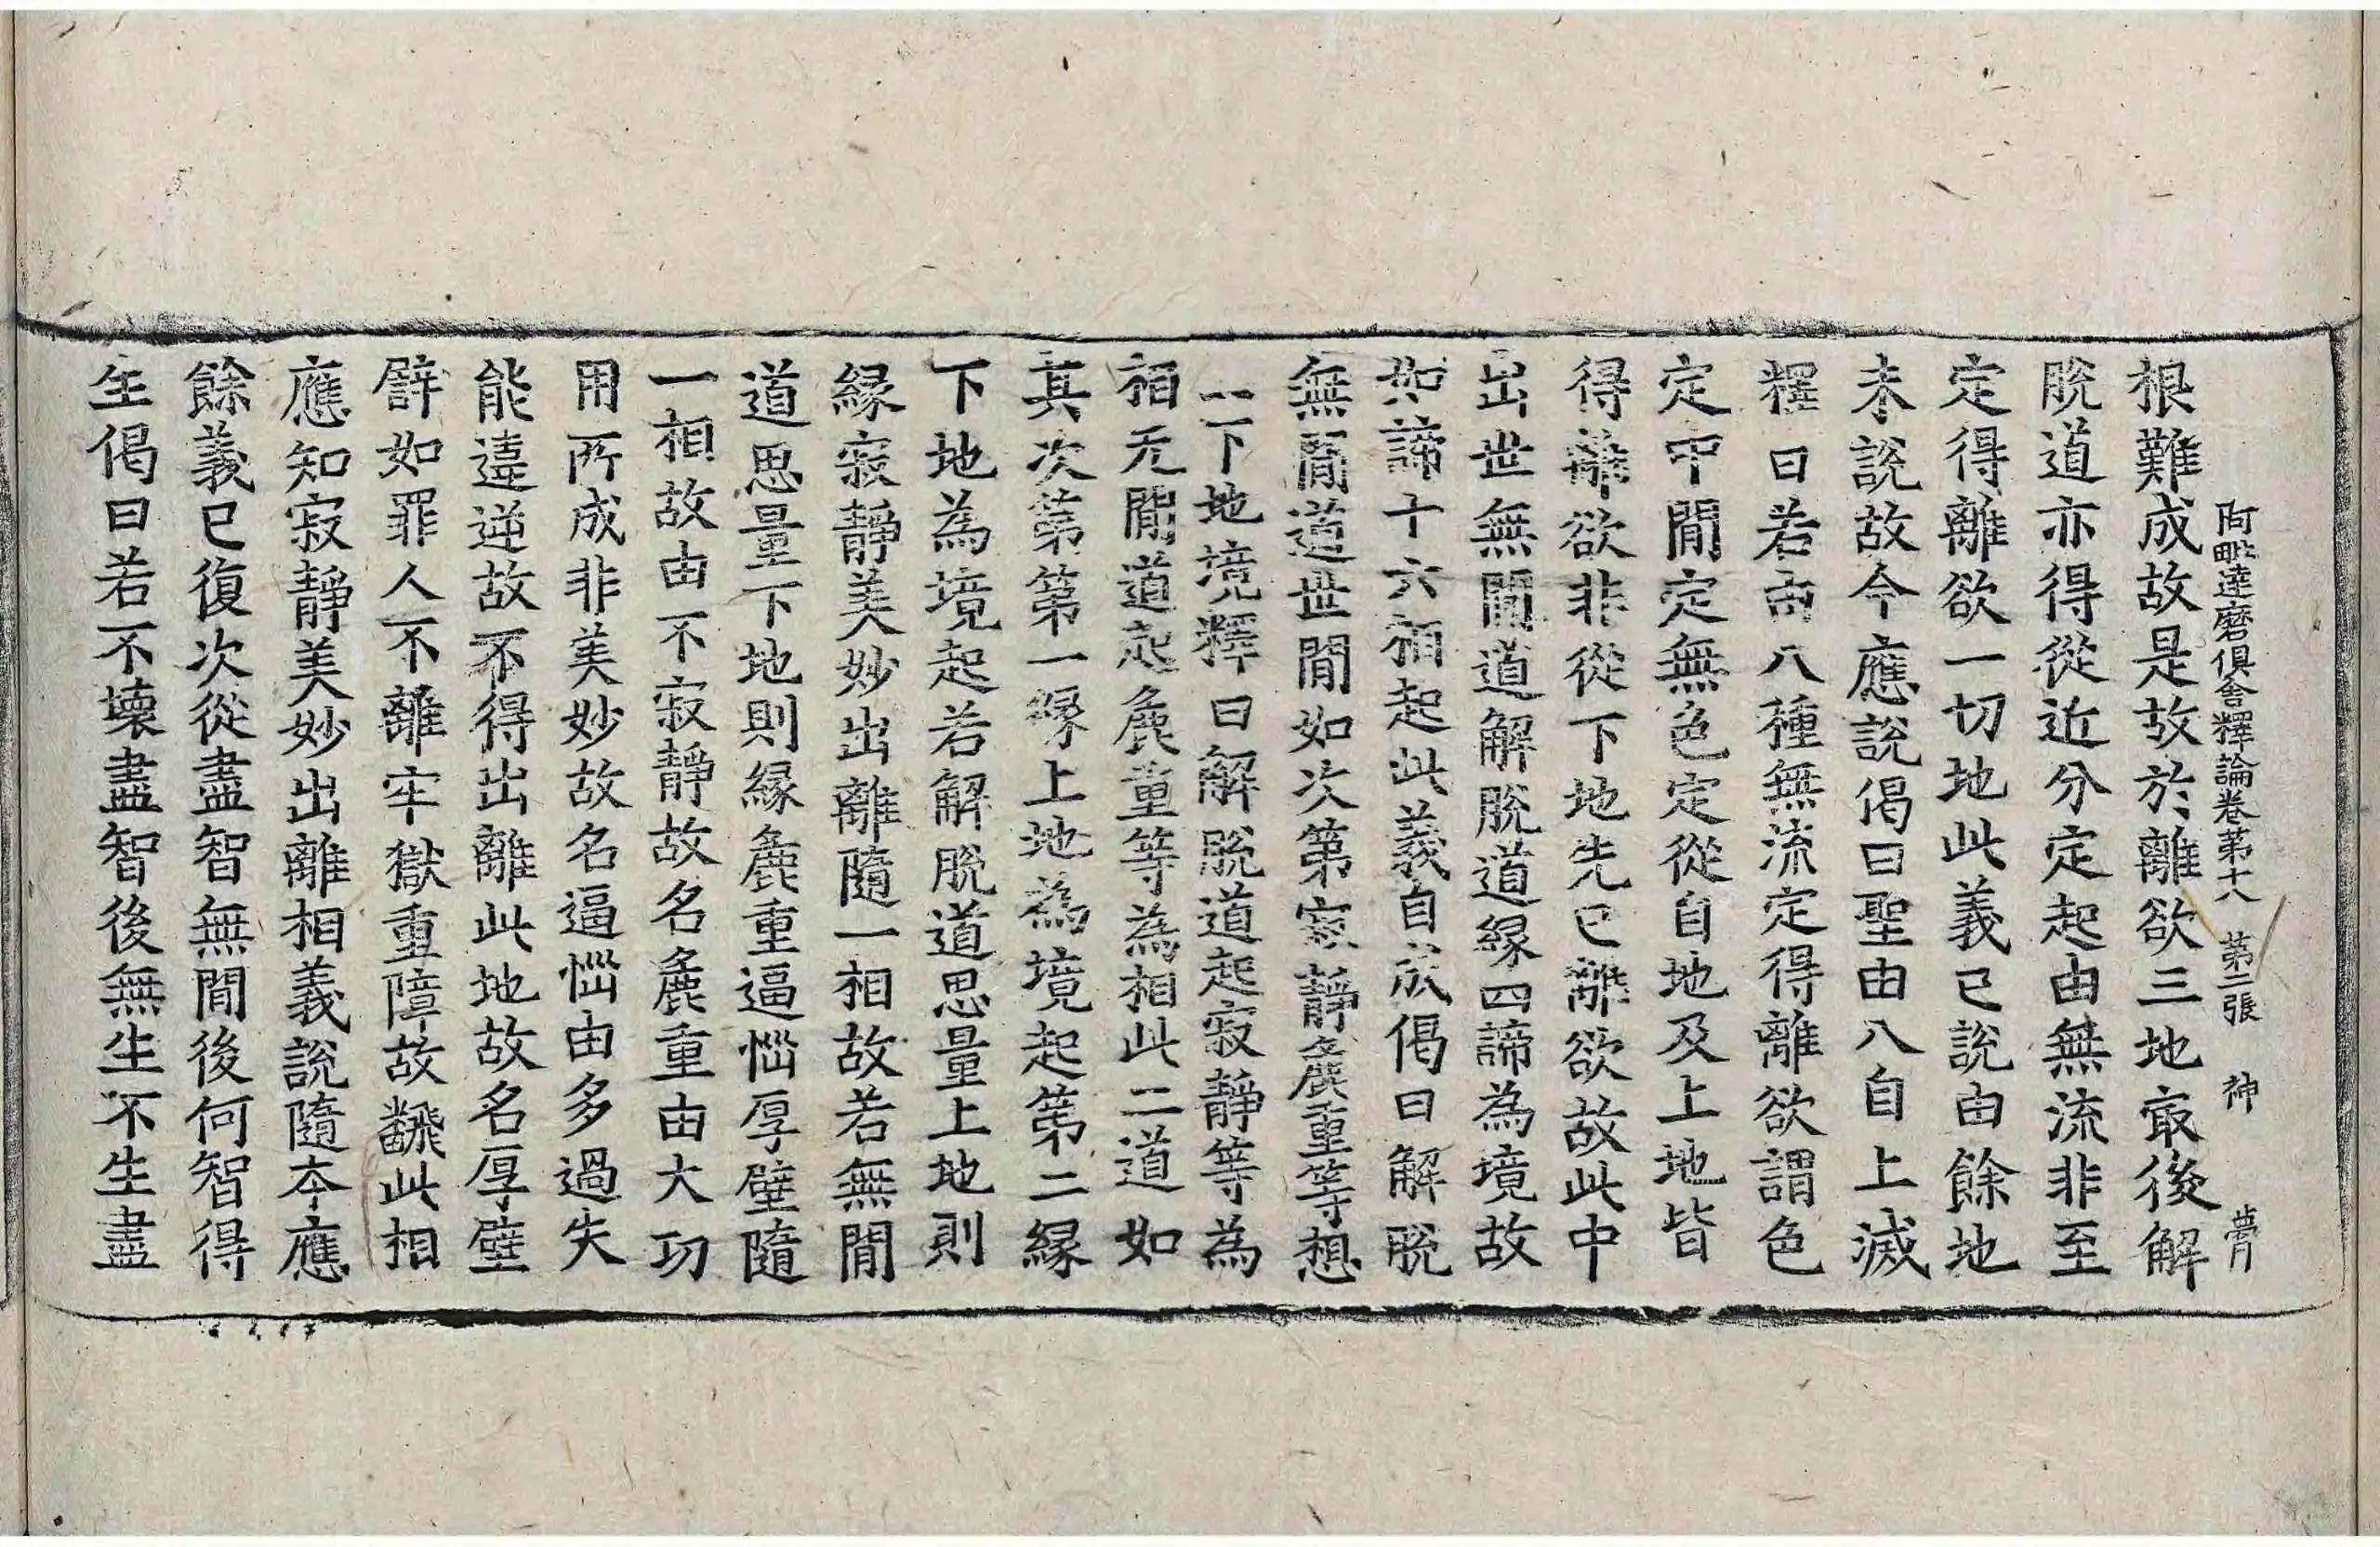 阿毗達磨俱舍釋論卷第十八 第二張 神
根難成故是故於離欲三地㝡後解
脫道亦得從近分定起由無流非至
定得離欲一切地此義已說由餘地
未說故今應說偈曰聖由八自上滅
釋曰若由八種無流定得離欲謂色
定中間定無色定從自地及上地皆
得離欲非從下地先已離欲故此中
出世無間道解脫道緣四諦為境故
如諦十六相起此義自成偈曰解脫
無間道世間如次第寂靜麁重等想
上下地境釋曰解脫道起寂靜等為
相无間道起麁重等為相此二道如
其次第第一緣上地為境起第二緣
下地為境起若解脫道思量上地則
緣寂靜美妙出離隨一相故若無間
道思量下地則緣麁重逼惱厚壁隨
一相故由不寂靜故名麁重由大功
用所成非美妙故名逼惱由多過失
能違逆故不得出離此地故名厚壁
譬如罪人不離牢獄重障故飜此相
應知寂靜美妙出離相義說隨夲應
餘義已復次從盡智無間後何智得
生偈曰若不壞盡智後無生不生盡